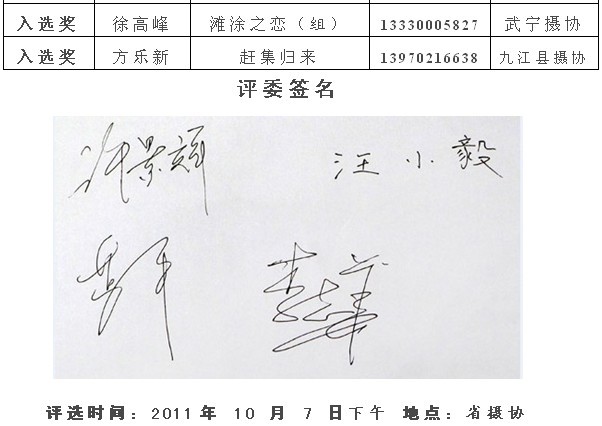 入选奖 徐高峰 滩涂之恋（组） 13330005827 武宁摄协
入选奖 方乐新 赶集归来 13970216638 九江县摄协
评委签名
汪小毅
评选时间：2011 年 10 月 7 日下午 地点：省摄协